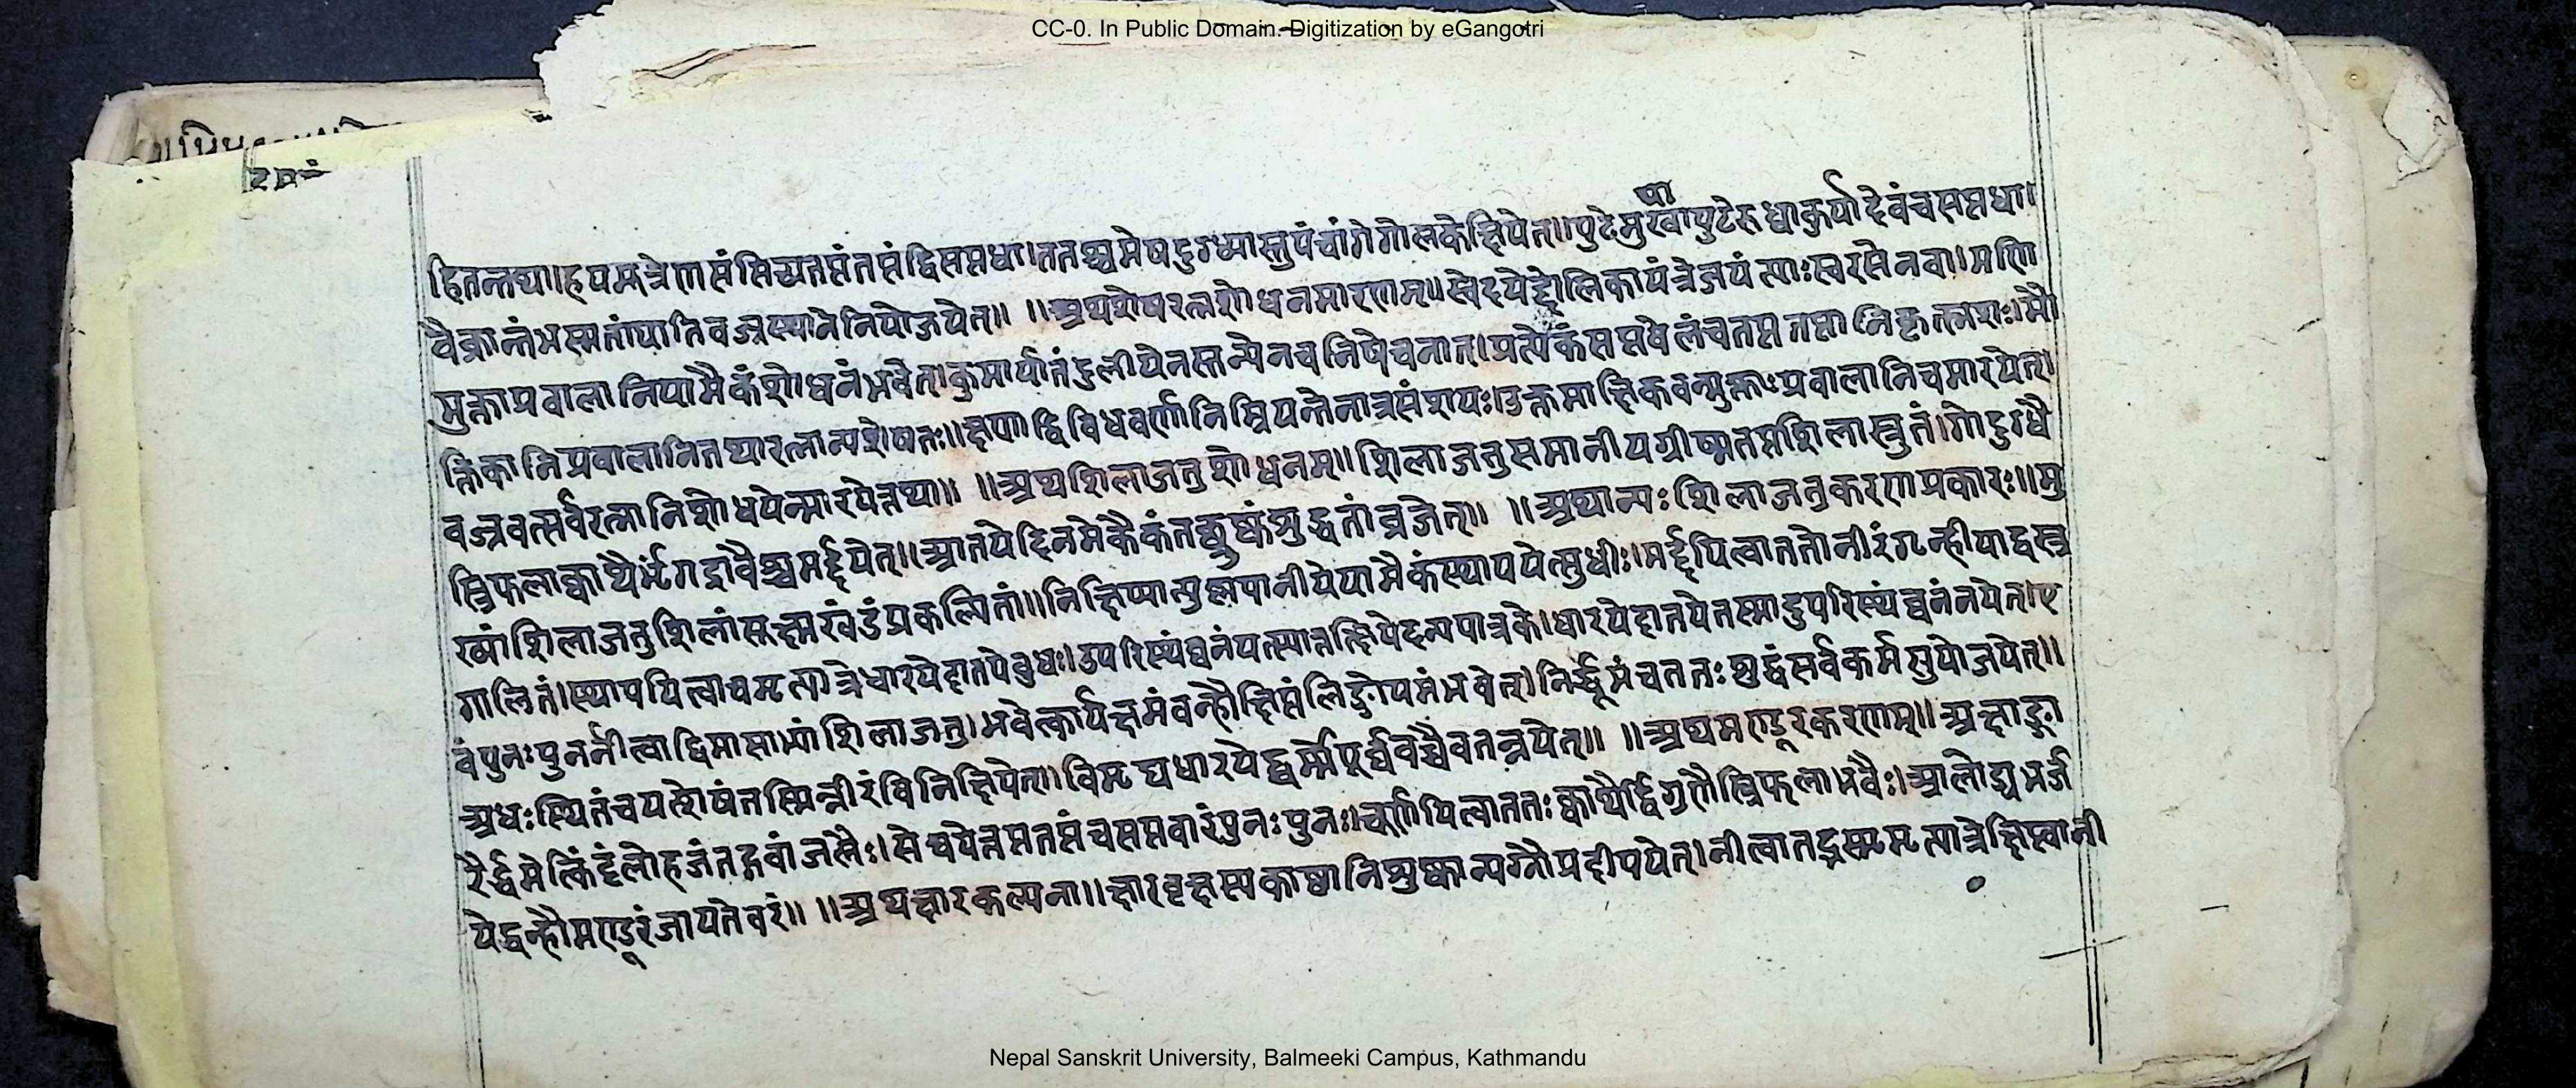 CC-0. In Public Domain. Digitization by eGangotri
षा
हितन्तथा॥हयमूत्रेणसंसिच्यतप्तंतप्तंद्विसप्तधा।ततश्चमेषदुग्ध्यास्तुपंचांगेगोलकेक्षिपेत्॥पुटेमुखापुटेरुध्वाकुर्यादेवंचसप्तधा।
वैक्रान्तंभस्मतांयातिवज्रस्थानेनियोजयेत्॥ ॥अथशेषरत्नशोधनमारणम्॥स्वेदयेद्दोलिकायंत्रेजयंत्याःस्वरसेनवा।मणि
मुक्ताप्रवालानियामैकंशोधनंभवेत्।कुमार्यातंडुलीयेनस्तन्येनचनिषेचनात्।प्रत्येकंसप्तवेलंचतप्ततप्तानिकृत्स्नशः।मौ
क्तिकानिप्रवालानितथारत्नान्यशेषतः॥क्षणाद्विविधवर्णानिम्रियन्तेनात्रसंशयः।उक्तमाक्षिकवन्मुक्ताःप्रवालानिचमारयेत्।
वज्रवत्सर्वरत्नानिशोधयेन्मारयेत्तथा॥ ॥अथशिलाजतुशोधनम्॥शिलाजतुसमानीयग्रीष्मतप्तशिलास्त्रुतं।गोदुग्धै
स्त्रिफलाक्वाथैर्भृंगद्रावैश्चमर्द्दयेत्।।आतपेदिनमेकैकंतच्छुष्कंशुद्धतांव्रजेत्॥ ॥अथान्यःशिलाजतुकरणप्रकारः॥मु
ख्यांशिलाजतुशिलांसूक्ष्मखंडंप्रकल्पितां॥निक्षिप्यात्युष्णपानीयेयामैकंस्थापयेत्सुधीः।मर्द्दयित्वाततोनीरंगृन्हीयाद्वस्त्र
गालितं।स्थापयित्वाचमृत्पात्रेधारयेदातपेबुधः।उपरिस्थंघनंयत्स्यात्तत्क्षिपेदन्यपात्रके।धारयेदातपेतस्मादुपरिस्थंघनंनयेत्।ए
वंपुनःपुनर्नीत्वाद्विमासाभ्यांशिलाजतु।भवेत्कार्यक्षमंवन्हौक्षिप्तंलिङ्गोपमंभवेत्।निर्द्धूमंचततःशुद्धंसर्वकर्मसुयोजयेत्॥
अधःस्थितंचयत्शेषंतस्मिन्नीरंविनिक्षिपेत्।।विमृद्यधारयेद्घर्म्मेपूर्व्ववच्चैवतन्नयेत्॥ ॥अथमण्डूरकरणम्॥अक्षाङ्गा
रैर्द्धमेत्किट्टंलोहजंतद्गवांजलैः।सेचयेत्तप्ततप्तंचसप्तवारंपुनःपुनः।चूर्णयित्वाततःक्वाथैर्द्विगुणैस्त्रिफलाभवैः।आलोड्यभर्ज
येद्वन्हौमण्डूरंजायतेवरं॥ ॥अथक्षारकल्पना॥क्षारवृक्षस्यकाष्ठानिशुष्कान्यग्नौप्रदीपयेत्।नीत्वातद्भस्ममृत्पात्रेक्षिप्त्वानी
Nepal Sanskrit University, Balmeeki Campus, Kathmandu